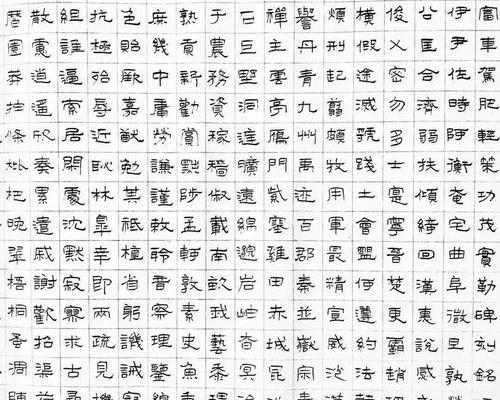 富車駕肥輕策功茂實勒碑刻銘
伊尹佐時阿衡奄宅曲阜微旦孰
公匡合濟弱扶傾綺回漢惠說感
俊乂密勿多士寔寧晉楚更霸趙
橫假途滅虢踐土會盟何遵約法
煩刑起翦頗牧用軍最精宣威沙
譽丹青九州禹迹百郡秦並嶽宗
禪主雲亭雁門紫塞雞田赤城昆
石巨野洞庭曠遠綿邈岩岫杳冥
于農務資稼穡俶載南畝我藝黍
熟貢新賞黜陟孟軻敦素史魚
庶幾中庸勞謙謹敕聆音察理鑒
色貽厥嘉猷勉其祗植省躬譏誡
抗極殆辱近恥林皋幸即兩疏見
組誰逼索居閑處沈默寂寥求古
散慮逍遙欣奏累遣慼謝歡招渠
曆園莽抽條枇杷晚翠梧桐蚤凋